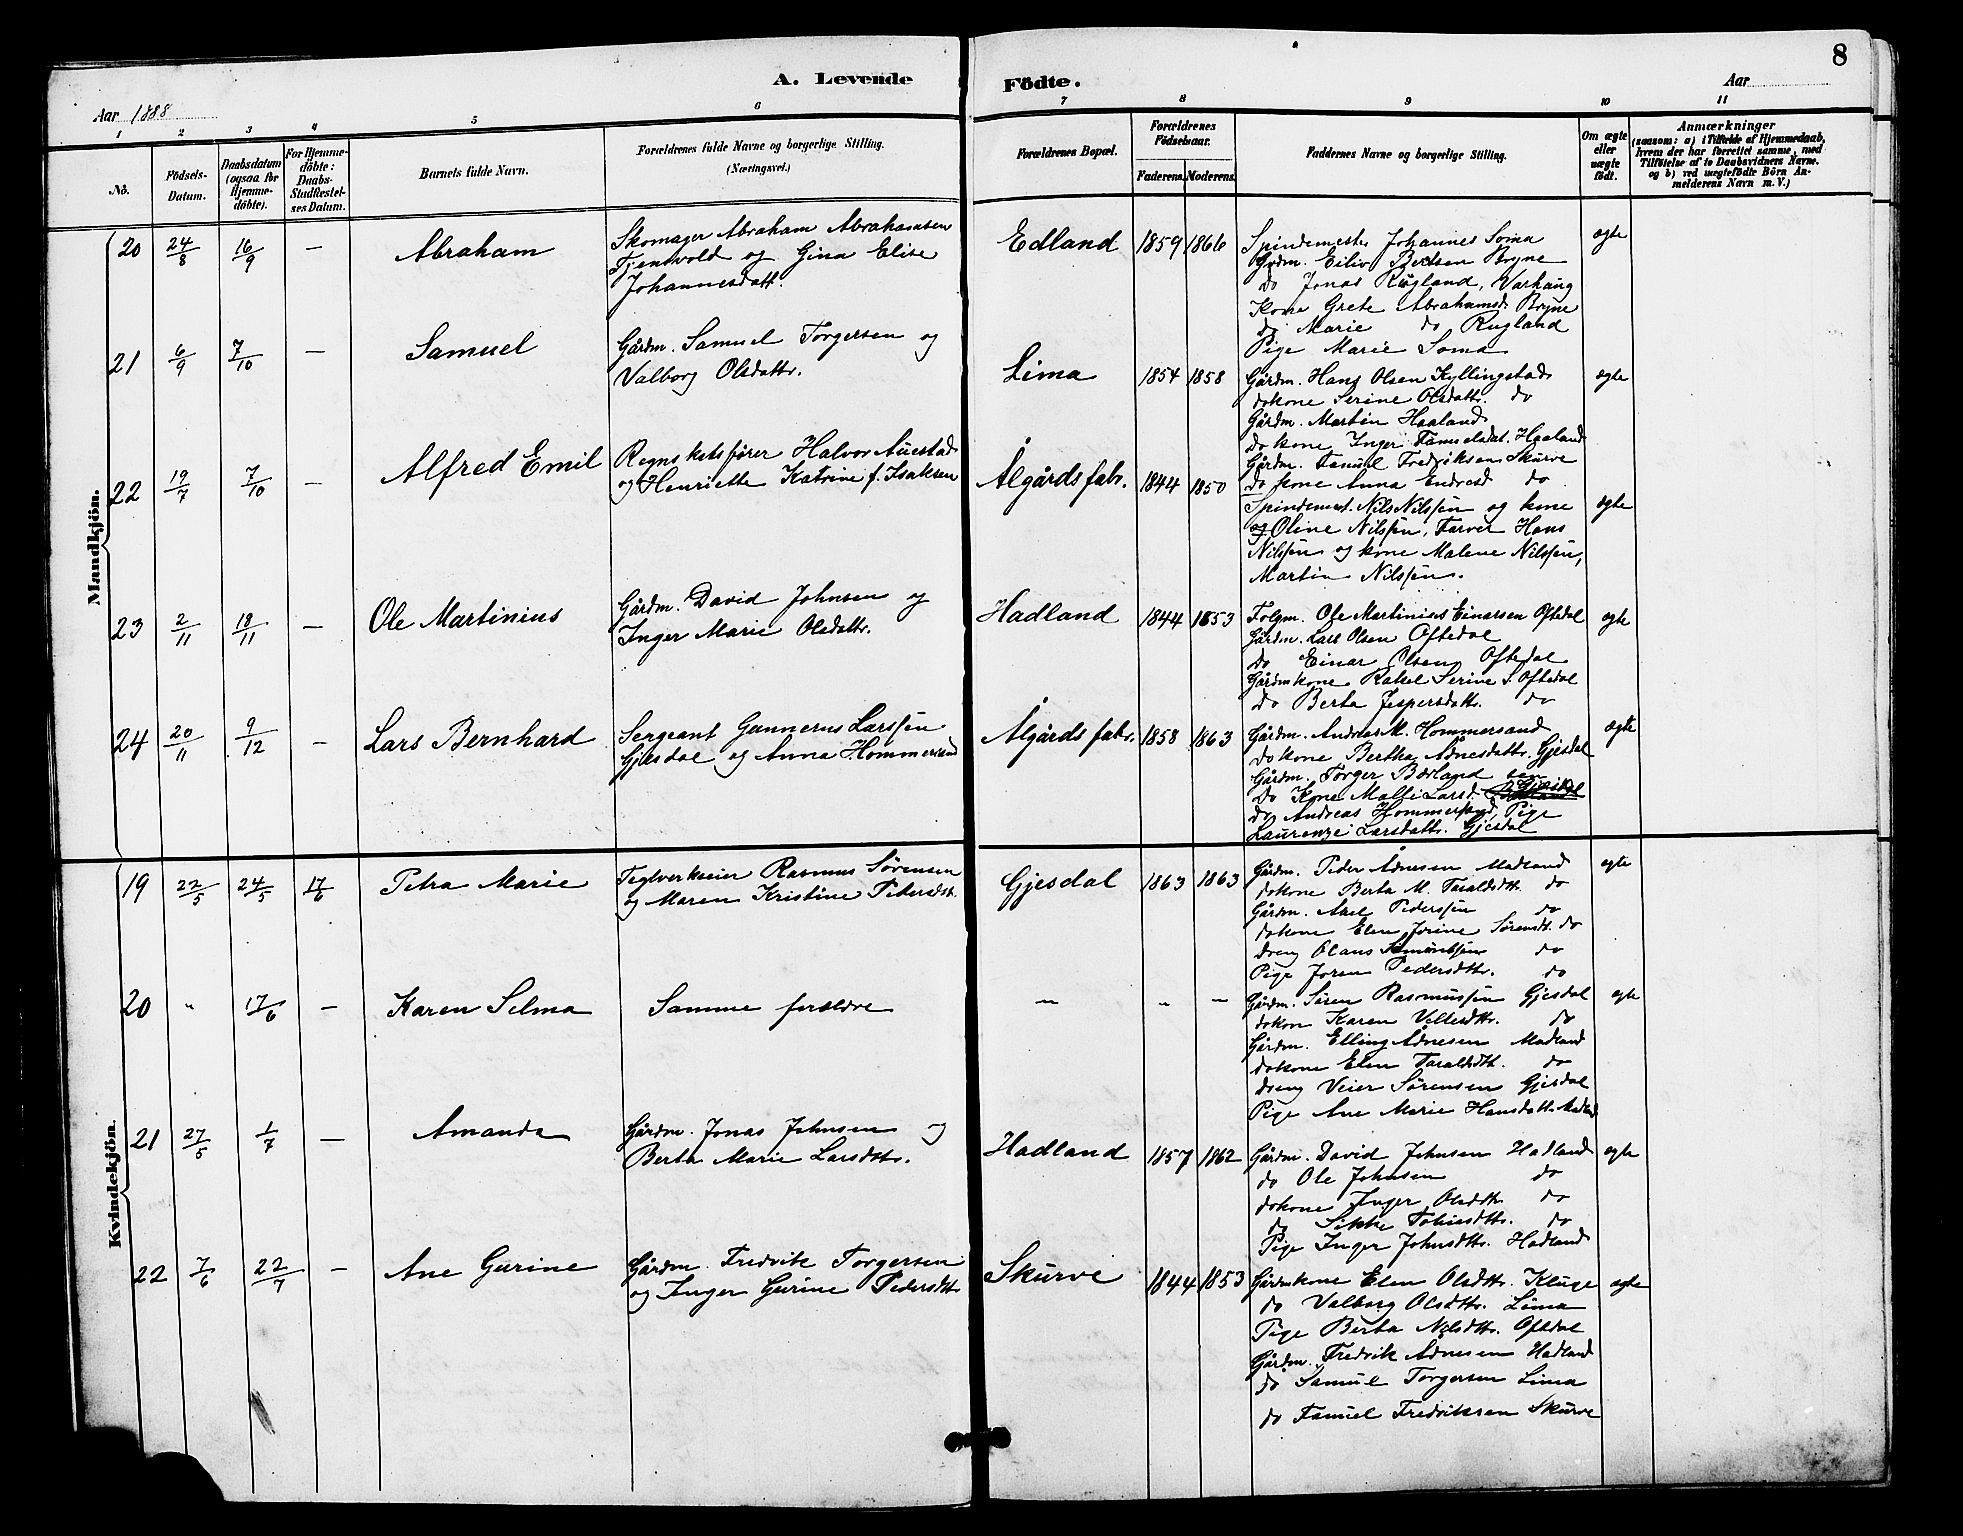 8
A. Levende Födte.
Aar 1888
Aar
1 2 3 4 5 6 7 8 9 10 11
No.
Födsels-Datum.
Daabsdatum (ogsaa for Hjemme-döbte).
For Hjemme-döbte: Daabs-Stadfæstel-ses Datum.
Barnets fulde Navn.
Forældrenes fulde Navne og borgerlige Stilling. (Næringsvei.)
Forældrenes Bopæl.
Forældrenes Födselsaar.
Faderens. Moderens.
Faddernes Navne og borgerlige Stilling.
Om ægte eller uægte födt.
Anmærkninger
(saasom: a) i Tilfælde af Hjemmedaab,
hvem der har forrettet samme, med
Tilföielse af to Daabsvidners Navne.
og b) ved uægtefödte Börn An-
melderens Navn m. V.)
Mandkjön.
20 24/8 16/9 — Abraham
Skomager Abraham Abrahamsen
Tjensvold og Gina Elise
Johannesdatt.
Edland 1859 1866
Spindemester Johannes Soma
Grdm. Eiliv Bertsen Bryne
do Jonas Rugland, Varhaug
Kone Grete Abrahamsd. Bryne
do Marie do Rugland
Pige Marie Soma
ægte
21 6/9 7/10 — Samuel
Gårdm. Samuel Torgersen og
Valborg Olsdattr.
Lima 1854 1858
Gårdm. Hans Olsen Kyllingstad
do kone Serine Olsdattr. do
Gårdm. Martin Haaland
do kone Inger Samuelsdat. Haaland
Gårdm. Samuel Fredriksen Skurve
do kone Anna Endresd do
ægte
22 19/7 7/10 — Alfred Emil
Regnskabsfører Halvor Auestad
og Henriette Katrine f. Isaksen
Ålgårds fabr. 1844 1850
Spindemst. Nils Nilssen og kone
og Oline Nilssen, Farver Hans
Nilssen og kone Malene Nilssen,
Martin Nilssen.
ægte
23 2/11 18/11 — Ole Martinius
Gårdm. David Johnsen og
Inger Marie Olsdattr.
Hadland 1844 1853
Folgm. Ole Martinius Einarsen Oftedal
Gårdm. Lars Olsen Oftedal
do Einar Olsen Oftedal
Gårdmkone Rakel Serine S. Oftedal
do Berta Jespersdattr. do
ægte
24 20/11 9/12 — Lars Bernhard
Sergeant Gunnerus Larssen
Gjesdal og Anna Hommersand
Ålgårds fabr. 1858 1863
Gårdm. Andreas M. Hommersand
do kone Bertha Adnesdattr. Gjesdal
Gårdm. Torger Bærland
do Kone Malli Larsd. Gjesdal
do Andreas Hommersand, Pige
Laurenze Larsdattr. Gjesdal
ægte
Kvindekjön.
19 22/5 24/5 17/6 Petra Marie
Teglverkseier Rasmus Sörensen
og Maren Kristine Pedersdt.
Gjesdal 1863 1863
Gårdm. Peder Ådnesen Madland
do kone Berta M. Taraldsdtt. do
Gårdm. Axel Pederssen do
do kone Elen Jorine Sørensdt. do
dreng Olaus Simonssen do
Pige Joren Pedersdttr. do
ægte
20 " 17/6 — Karen Selma
Samme forældre
— " —
Gårdm. Sören Rasmussen Gjesdal
do kon Karen do
Gårdm. Elling Ådnesen Madland
do kone Elen Taraldsdtt. do
dreng Veier Sørensen Gjesdal
Pige Ane Marie Hansdattr. Madland
ægte
21 27/5 1/7 — Amanda
Gårdm. Jonas Johnsen og
Berta Marie Larsdttr.
Hadland 1857 1862
Gårdm. David Johnsen Hadland
do Ole Johnsen do
do kone Inger Olsdttr do
do Sikke Tobiasdttr. do
Pige Inger Johnsdttr. Hadland
ægte
22 7/6 22/7 — Ane Gurine
Gårdm. Fredrik Torgersen
og Inger Gurine Pedersdttr
Skurve 1844 1853
Gårdmkone Elen Olsdttr. Kluge
do Valborg Olsdttr. Lima
Pige Berta Nilsdttr. Oftedal
Gårdm. Fredrik Ådnesen Hadland
do Samuel Torgersen Lima
do Samuel Fredriksen Skurve
ægte